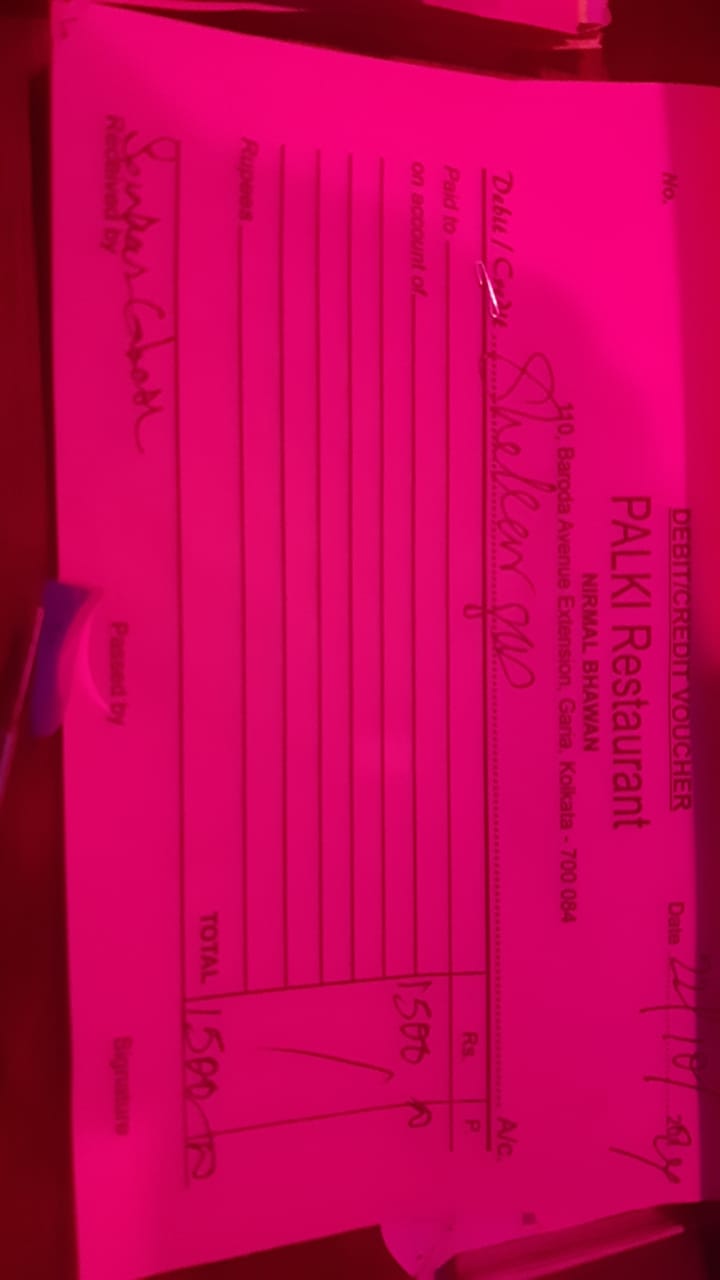 DEBIT/CREDIT VOUCHER
No. Date
PALKI Restaurant
NIRMAL BHAWAN
110, Baroda Avenue Extension, Garia, Kolkata - 700 084
Debit / Credit A/c.
Paid to Rs. P.
on account of 1500
Rupees
TOTAL 1500
Received by Passed by Signature